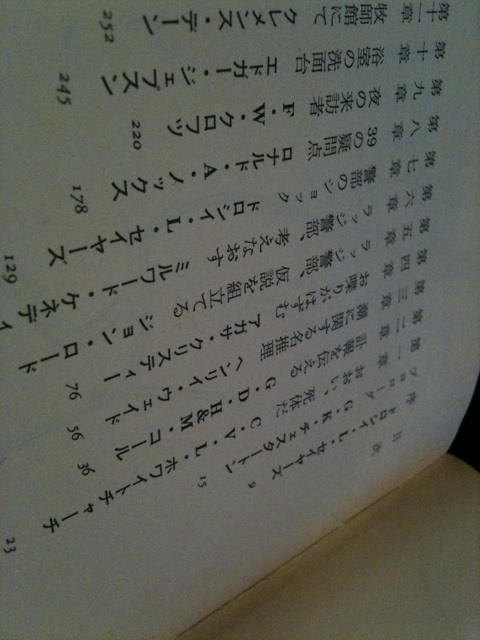 目次
序 ドロシイ・L・セイヤーズ 9
プロローグ G・K・チェスタートン 15
第一章 おおい、死体だ C・V・L・ホワイトチャーチ 23
第二章 訃報を伝える G・D・H&M・コール 36
第三章 潮に関する名推理 ヘンリイ・ウェイド 56
第四章 お喋りがはずむ アガサ・クリスティー 76
第五章 ラッジ警部、仮説を組立てる ジョン・ロード
第六章 ラッジ警部、考えなおす ミルワード・ケネディ
第七章 警部のショック ドロシイ・L・セイヤーズ 129
第八章 39の疑問点 ロナルド・A・ノックス 178
第九章 夜の来訪者 F・W・クロフツ 220
第十章 浴室の洗面台 エドガー・ジェプスン 245
第十一章 牧師館にて クレメンス・デーン 252